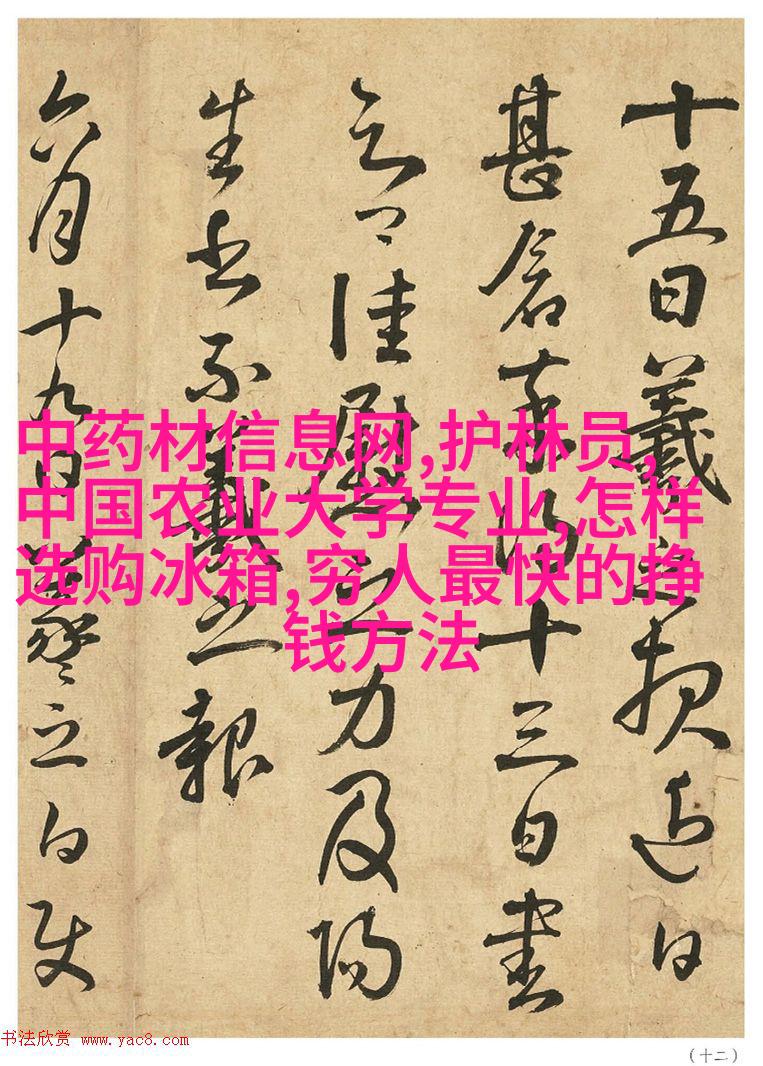 十五日羲之頓近日
甚念足得十三日書
佳慰之力及
生不羲之報
六月十九日羲之白使
中药材信息网,护林员,
中国农业大学专业,怎样
选购冰箱,穷人最快的挣
钱方法
书法欣赏 www.yac8.com
（十二）